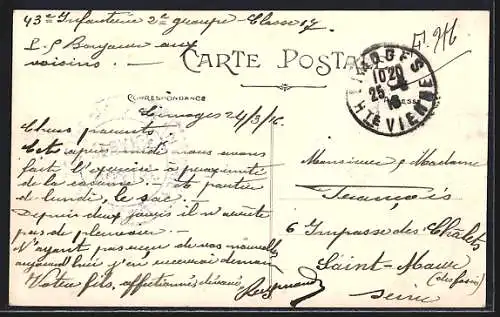 43e Infanterie 2e groupe – Classe 17
P.S Bonjour aux
voisins. –
CARTE POSTALE
LIMOGES
10 20
25 -3
16
HTE VIENNE
CORRESPONDANCE
ADRESSE
Limoges 24/3/16.
Chers parents,
Cet après midi nous avons
fait l'exercice à proximité
de la caserne. – et partir
de lundi, le sac. –
Depuis deux jours il n'arrête
pas de pleuvoir. –
N'ayant pas reçu de vos nouvelles
aujourd'hui j'en recevrai demain
Votre fils, affectionné
Raymond
Monsieur & Madame
François
6 Impasse des Chalets
Saint-Maur
(des fossés)
Seine